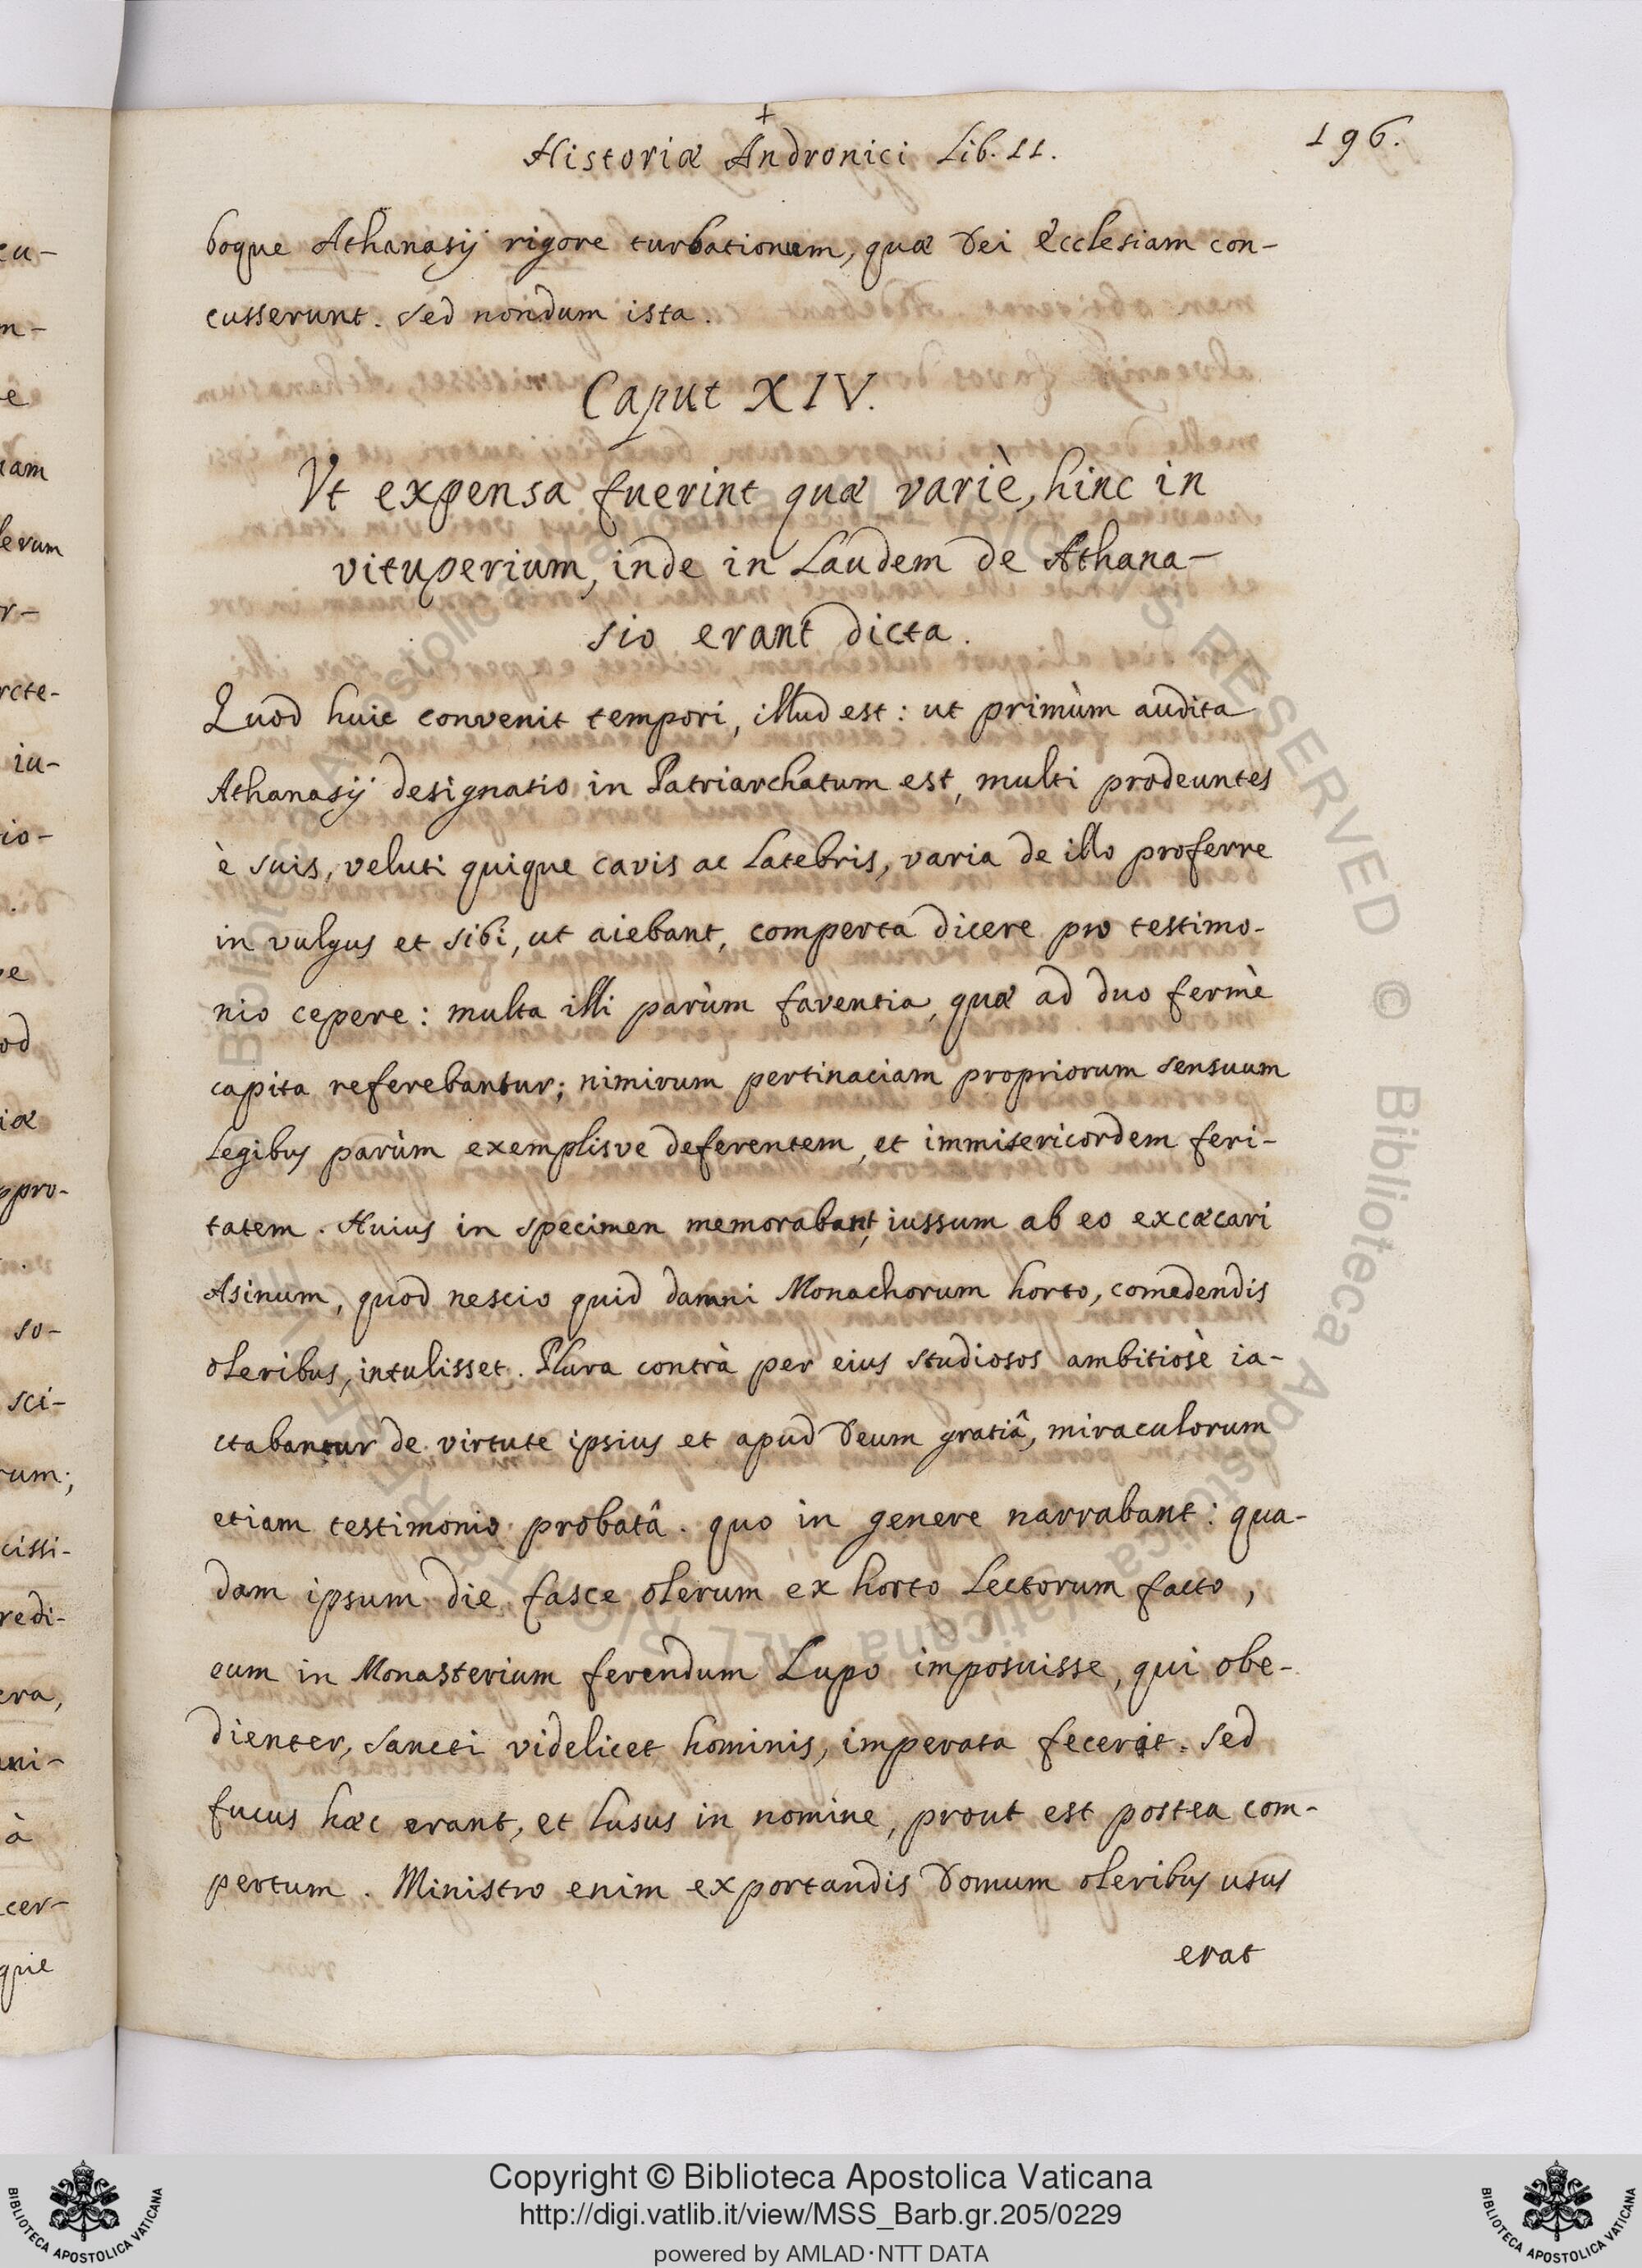 +
Historiæ Andronici Lib. II.
196.
boque Athanasij rigore turbationum, quæ Dei Ecclesiam con-
cusserunt. Sed nondum ista.
Caput XIV.
Vt expensa fuerint quæ variè, hinc in
vituperium, inde in Laudem de Athana-
sio erant dicta.
Quod huic convenit tempori, illud est: ut primùm audita
Athanasij designatio in Patriarchatum est, multi prodeuntes
è suis, veluti quique cavis ac Latebris, varia de illo proferre
in vulgus et sibi, ut aiebant, comperta dicere pro testimo-
nio cepere: multa illi parùm faventia, quæ ad duo fermè
capita referebantur; nimirum pertinaciam propriorum sensuum
Legibus parùm exemplisve deferentem, et immisericordem feri-
tatem. Huius in specimen memorabant, iussum ab eo excæcari
Asinum, quod nescio quid damni Monachorum horto, comedendis
oleribus, intulisset. Plura contrà per eius studiosos ambitiosè ia-
ctabantur de virtute ipsius et apud Deum gratiâ, miraculorum
etiam testimonio probatâ. quo in genere narrabant: qua-
dam ipsum die fasce olerum ex horto Lectorum facto,
eum in Monasterium ferendum Lupo imposuisse, qui obe-
dienter, sancti videlicet hominis, imperata fecerit. Sed
fucus hæc erant, et Lusus in nomine, prout est postea com-
pertum. Ministro enim exportandis Domum oleribus usus
erat
Copyright © Biblioteca Apostolica Vaticana
http://digi.vatlib.it/view/MSS_Barb.gr.205/0229
powered by AMLAD·NTT DATA
BIBLIOTECA APOSTOLICA VATICANA
BIBLIOTECA APOSTOLICA VATICANA